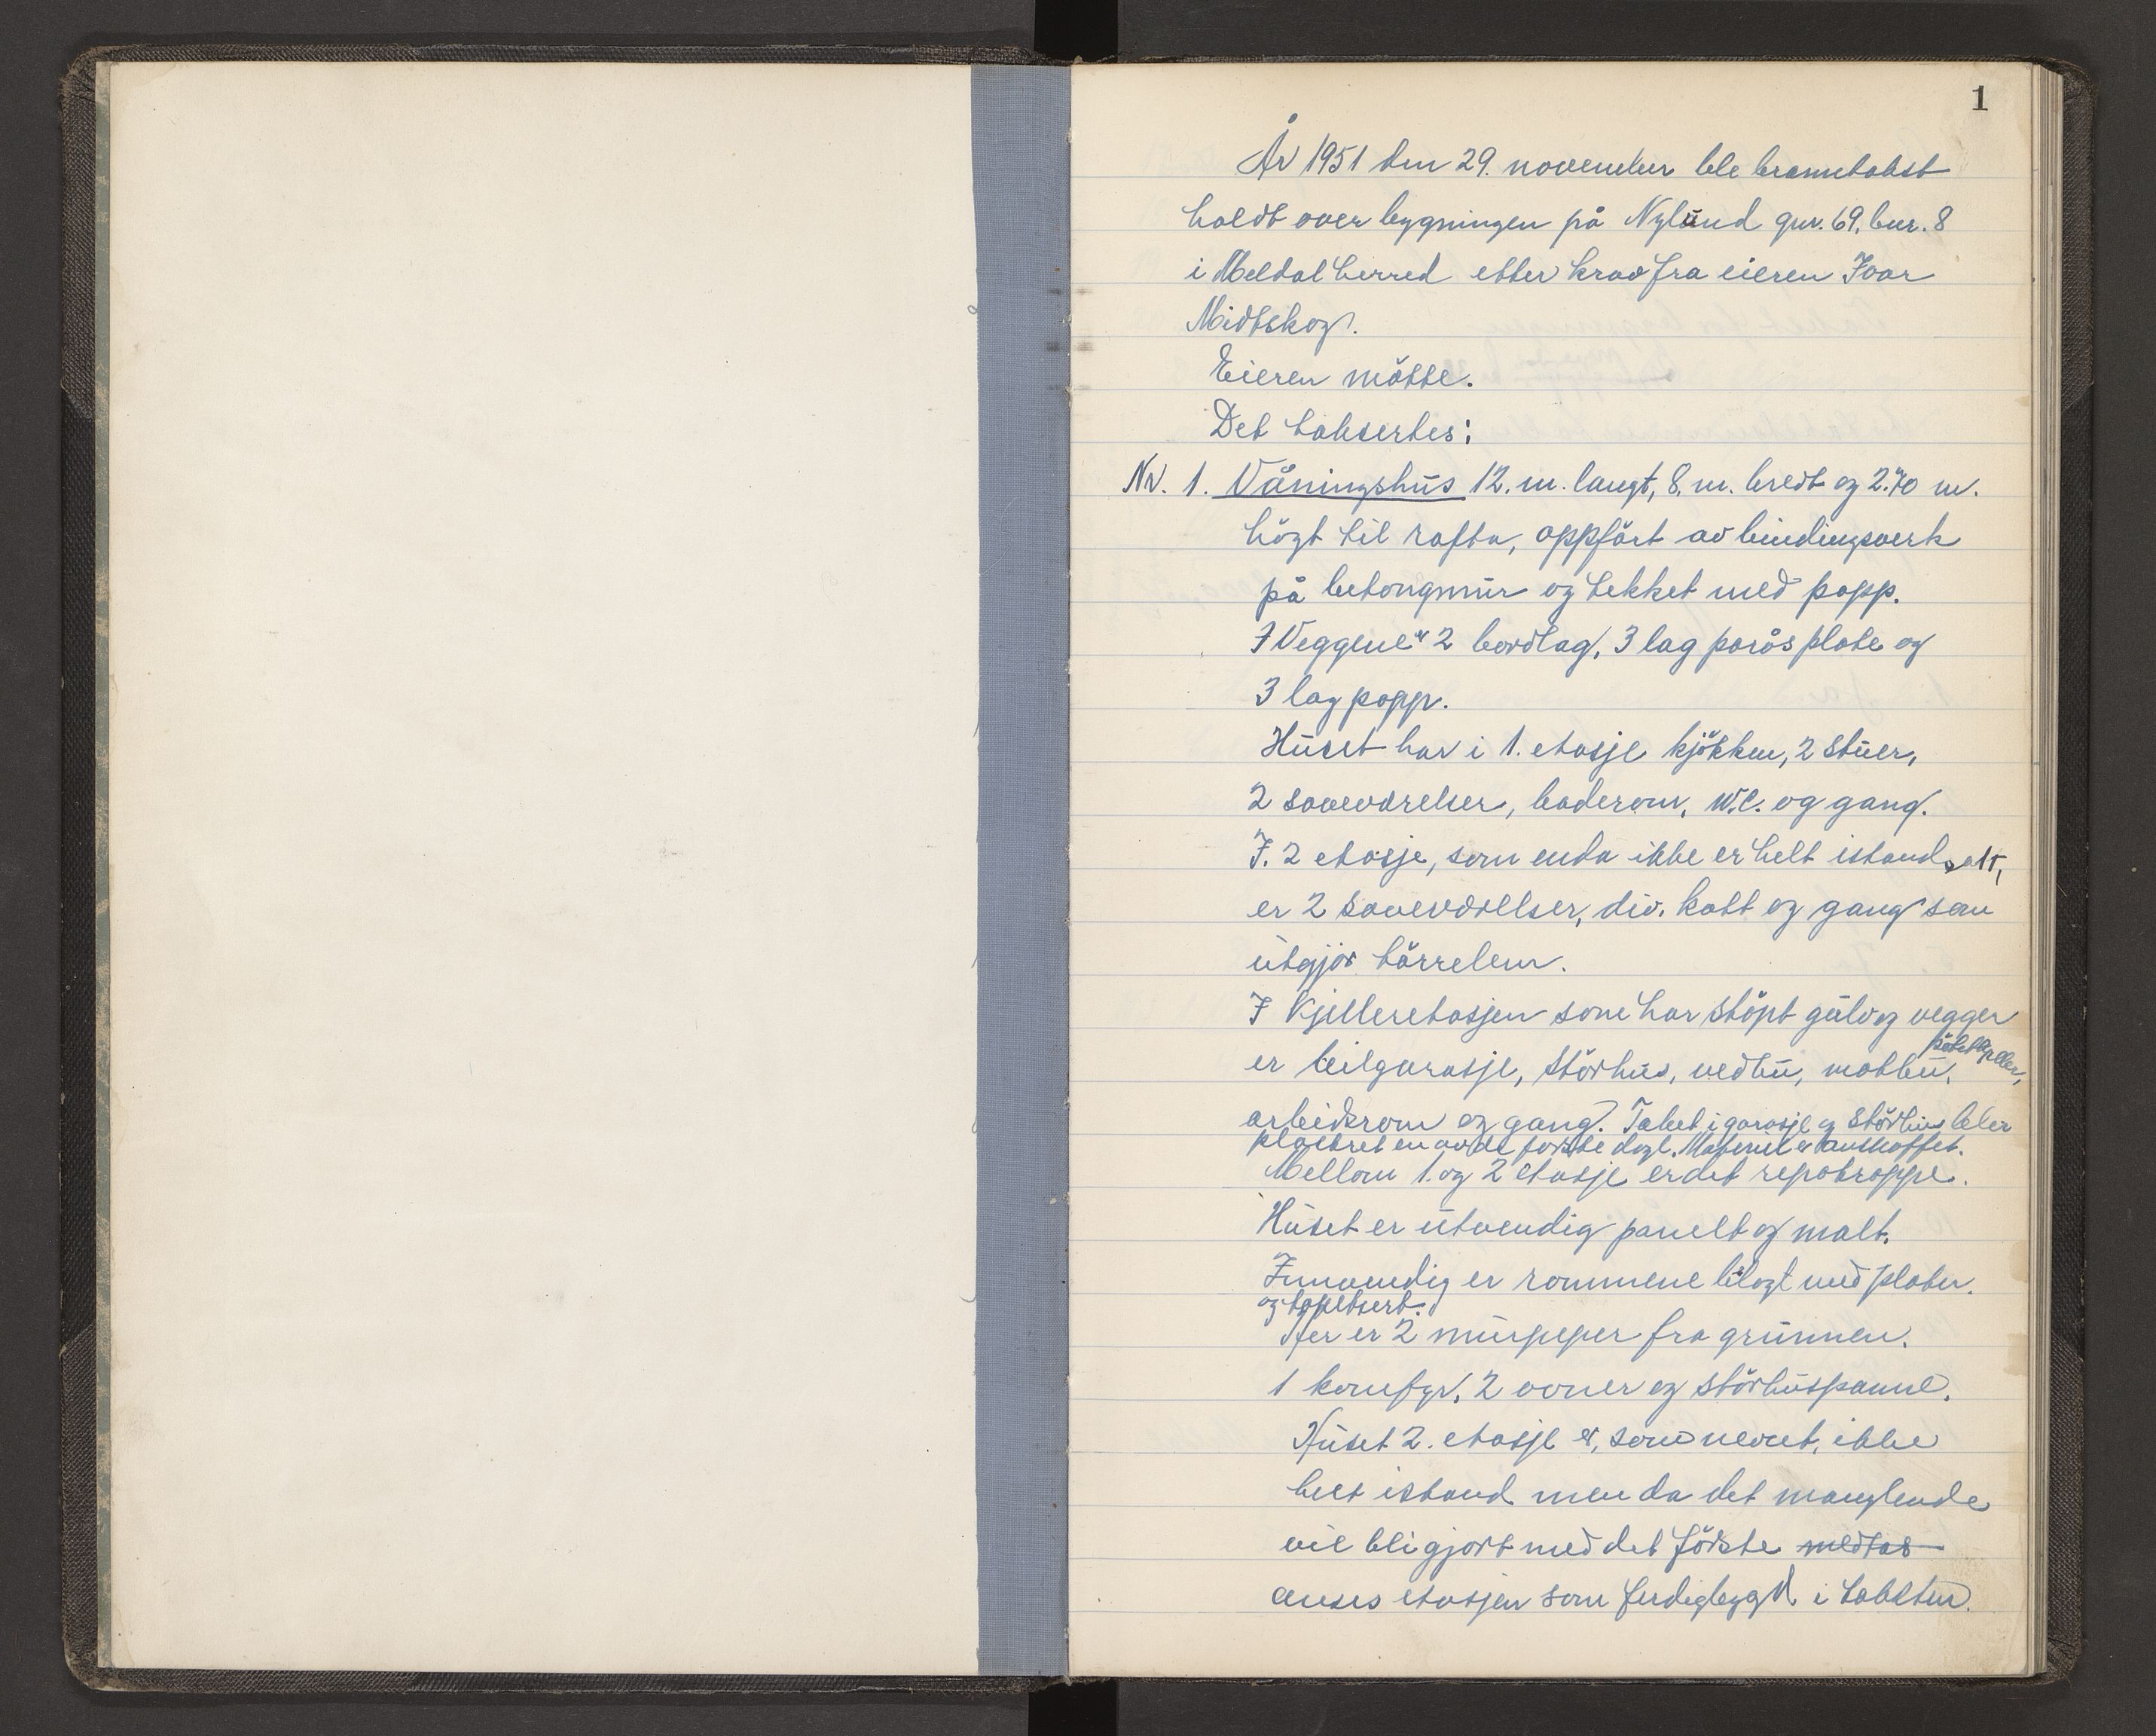 1
År 1951 den 29. november ble branntakst
holdt over bygningen på Nylund gnr. 69. bnr. 8
i Meldal herred etter krav fra eieren Ivar
Midtskog.
Eieren møtte.
Det taksertes:
Nr. 1. Våningshus 12. m. langt, 8. m. bredt og 2.70 m.
høgt til rafta, oppført av bindingsverk
på betongmur og tekket med papp.
I Veggene er 2 bordlag, 3 lag porøs plate og
3 lag papp.
Huset har i 1. etasje kjøkken, 2 stuer,
2 soveværelser, baderom, W.C. og gang.
I. 2 etasje, som enda ikke er helt istandsatt,
er 2 soveværelser, div. kott og gang som
utgjør tørrelem.
I Kjelleretasjen som har støpt gulv og vegger
er bilgarasje, störhus, vedbu, matbu, potetkjeller,
arbeidsrom og gang. Taket i garasje og störhus blir
plastret en av de første dage. Materiel er anskaffet.
Mellom 1. og 2 etasje er det repotrappe.
Huset er utvendig panelt og malt.
Innvendig er rommene belagt med plater.
og tapetsert.
Her er 2 murpiper fra grunnen.
1 komfyr, 2 ovner og störhuspanne.
Huset 2. etasje er, som nevnt, ikke
helt istand men da det manglende
vil bli gjort med det første medtas
anses etasjen som ferdigbygd i taksten.